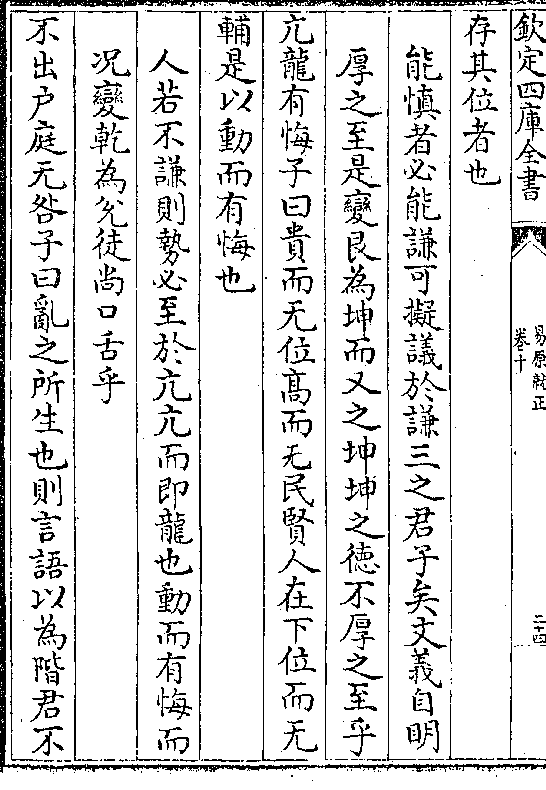 欽定四庫全書
易原就正
卷十
二十四
存其位者也
能慎者必能謙可擬議於謙三之君子矣文義自明
厚之至是變艮為坤而又之坤坤之德不厚之至乎
亢龍有悔子曰貴而无位髙而无民賢人在下位而无
輔是以動而有悔也
人若不謙則勢必至於亢亢而即龍也動而有悔而
况變乾為兊徒尚口舌乎
不出户庭无咎子曰亂之所生也則言語以為階君不